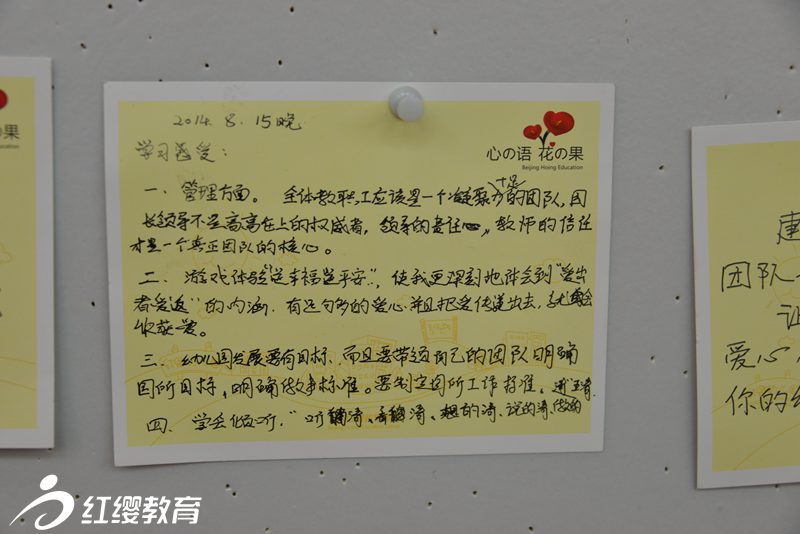 2014. 8. 15晚
学习感受：
心の语 花の果
Beijing Hoing Education
一、管理方面。 全体教职工应该是一个凝聚力十足的团队，园
长领导不是高高在上的权威者，领导的责任心，教师的信任
才是一个真正团队的核心。
二、游戏体验“送幸福送平安”，使我更深刻地体会到“爱出
者爱返”的内涵，有足够多的爱心，并且把爱传递出去，才会
收获爱。
三、幼儿园发展要有目标，而且要带过自己的团队明确
园所目标，明确做事标准。要制定园所工作标准，
四、学会倾听，“听清、看清、想的清、说的清、做的
果
Education
建
团队
让
爱心
你的
红缨教育